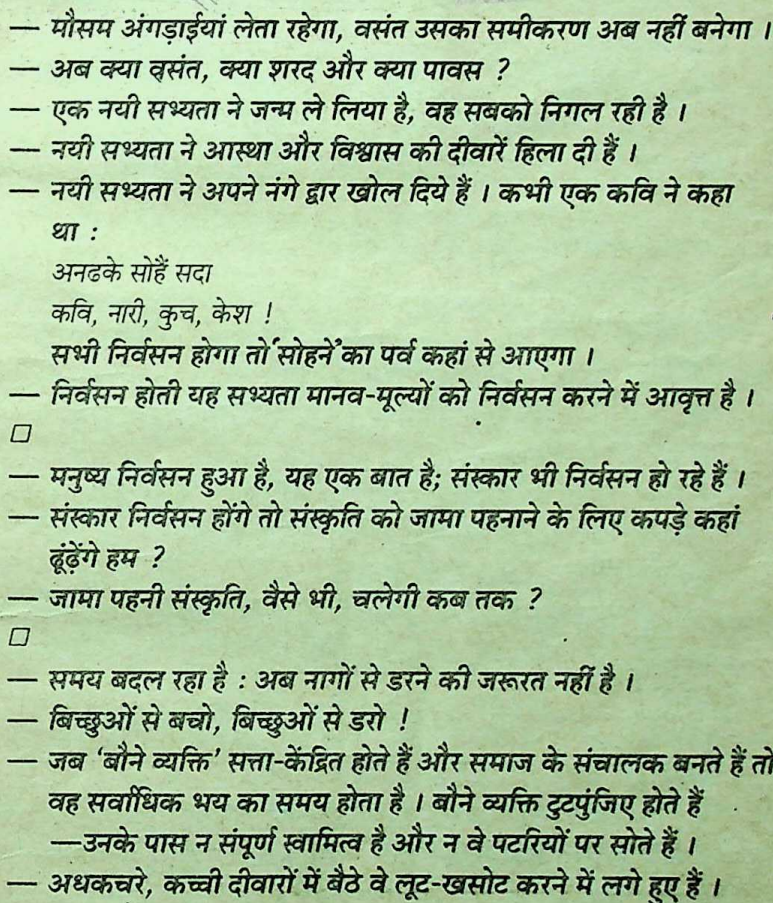 — मौसम अंगड़ाईयां लेता रहेगा, वसंत उसका समीकरण अब नहीं बनेगा ।
— अब क्या वसंत, क्या शरद और क्या पावस ?
— एक नयी सभ्यता ने जन्म ले लिया है, वह सबको निगल रही है ।
— नयी सभ्यता ने आस्था और विश्वास की दीवारें हिला दी हैं ।
— नयी सभ्यता ने अपने नंगे द्वार खोल दिये हैं । कभी एक कवि ने कहा
था :
अनढके सोहैं सदा
कवि, नारी, कुच, केश !
सभी निर्वसन होगा तो 'सोहने' का पर्व कहां से आएगा ।
— निर्वसन होती यह सभ्यता मानव-मूल्यों को निर्वसन करने में आवृत्त है ।
□
— मनुष्य निर्वसन हुआ है, यह एक बात है; संस्कार भी निर्वसन हो रहे हैं ।
— संस्कार निर्वसन होंगे तो संस्कृति को जामा पहनाने के लिए कपड़े कहां
ढूंढ़ेंगे हम ?
— जामा पहनी संस्कृति, वैसे भी, चलेगी कब तक ?
□
— समय बदल रहा है : अब नागों से डरने की जरूरत नहीं है ।
— बिच्छुओं से बचो, बिच्छुओं से डरो !
— जब 'बौने व्यक्ति' सत्ता-केंद्रित होते हैं और समाज के संचालक बनते हैं तो
वह सर्वाधिक भय का समय होता है । बौने व्यक्ति टुटपुंजिए होते हैं
—उनके पास न संपूर्ण स्वामित्व है और न वे पटरियों पर सोते हैं ।
— अधकचरे, कच्ची दीवारों में बैठे वे लूट-खसोट करने में लगे हुए हैं ।